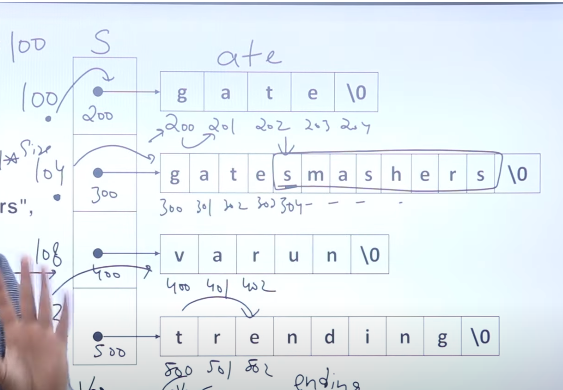 100 S
ate
100
g a t e \0
200
200 201 202 203 204
*Size
104
g a t e s m a s h e r s \0
300
rs",
300 301 302 303 304
108
v a r u n \0
400
400 401 402
2
t r e n d i n g \0
500
500 501 502
ending